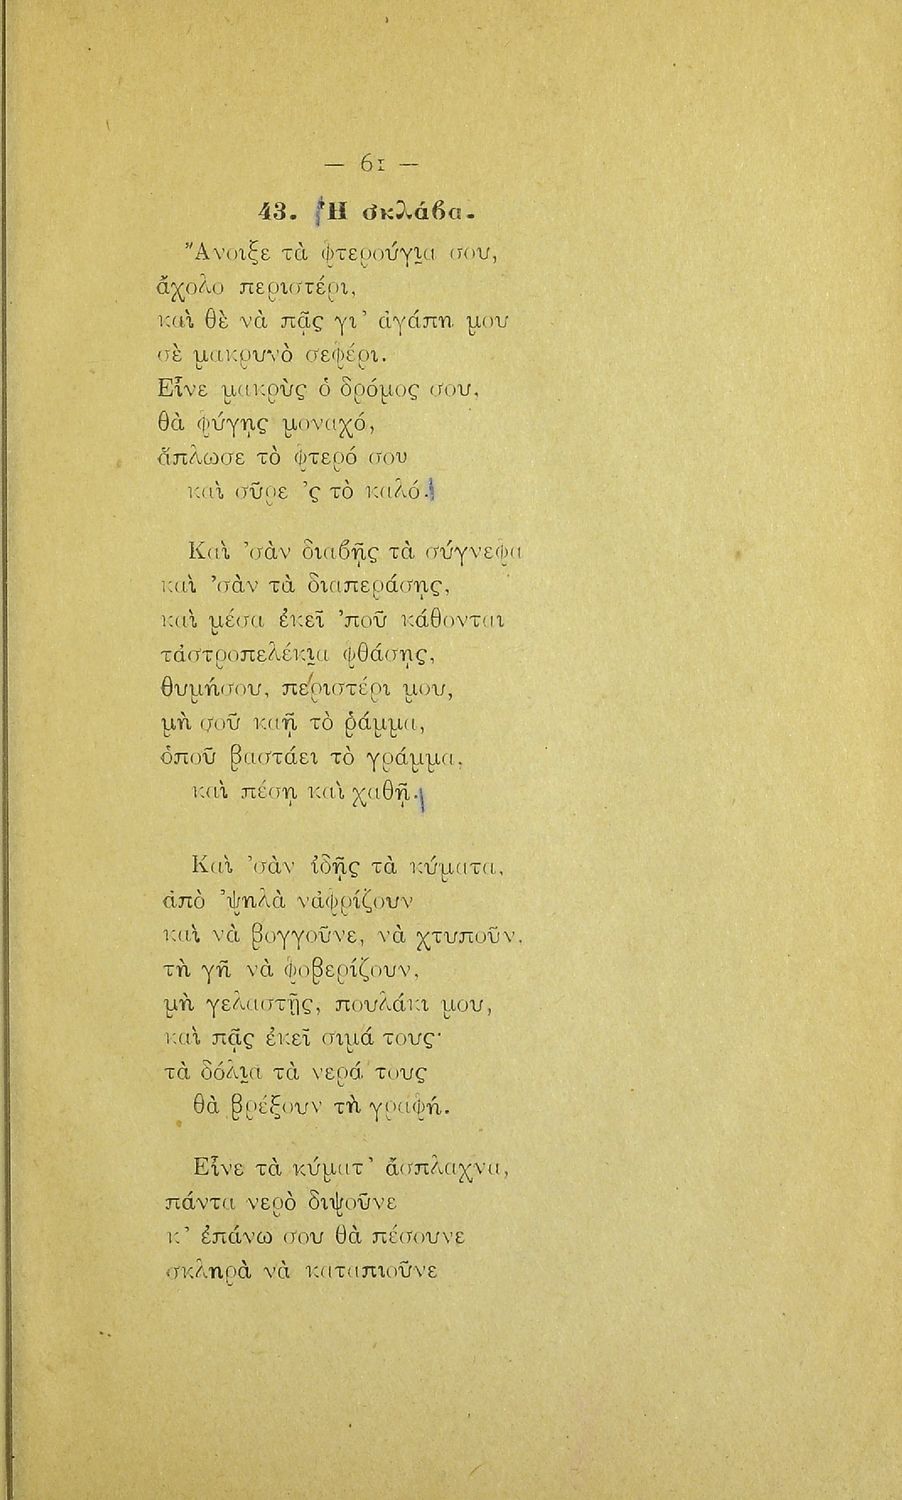 — 61 —
43. Ἡ σκλάβα.
"Ανοιξε τὰ φτερούγια σου,
ἄχολο περιστέρι,
καὶ θὲ νὰ πᾷς γι' ἀγάπη μου
σὲ μακρυνὸ σεφέρι.
Εἶνε μακρὺς ὁ δρόμος σου,
θὰ φύγῃς μοναχό,
ἅπλωσε τὸ φτερό σου
καὶ σῦρε 'ς τὸ καλό.
Καὶ 'σὰν διαβῇς τὰ σύγνεφα
καὶ 'σὰν τὰ διαπεράσῃς,
καὶ μέσα ἐκεῖ 'ποῦ κάθονται
τἀστροπελέκια φθάσῃς,
θυμήσου, περιστέρι μου,
μὴ σοῦ καῇ τὸ ῥάμμα,
ὁποῦ βαστάει τὸ γράμμα,
καὶ πέσῃ καὶ χαθῇ.
Καὶ 'σὰν ἰδῇς τὰ κύματα,
ἀπὸ 'ψηλὰ νἀφρίζουν
καὶ νὰ βογγοῦνε, νὰ χτυποῦν,
τὴ γῆ νὰ φοβερίζουν,
μὴ γελαστῇς, πουλάκι μου,
καὶ πᾷς ἐκεῖ σιμά τους·
τὰ δόλια τὰ νερά τους
θὰ βρέξουν τὴ γραφή.
Εἶνε τὰ κύματ' ἄσπλαχνα,
πάντα νερὸ διψοῦνε
κ' ἐπάνω σου θὰ πέσουνε
σκληρὰ νὰ καταπιοῦνε